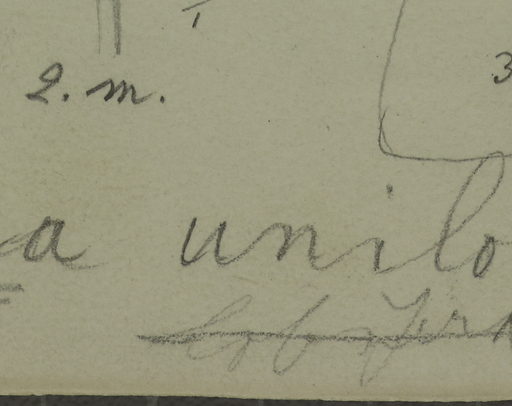 2. m. 3
a unilo